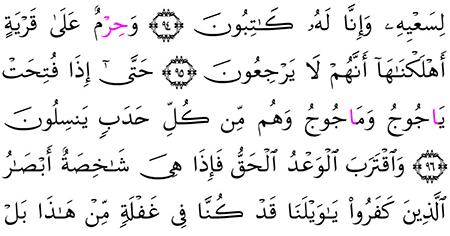 لِسَعْيِهِۦ وَإِنَّا لَهُۥ كَـٰتِبُونَ ۝٩٤ وَحِرْمٌ عَلَىٰ قَرْيَةٍ
أَهْلَكْنَـٰهَآ أَنَّهُمْ لَا يَرْجِعُونَ ۝٩٥ حَتَّىٰٓ إِذَا فُتِحَتْ
يَاجُوجُ وَمَاجُوجُ وَهُم مِّن كُلِّ حَدَبٍ يَنسِلُونَ
۝٩٦ وَٱقْتَرَبَ ٱلْوَعْدُ ٱلْحَقُّ فَإِذَا هِىَ شَـٰخِصَةٌ أَبْصَـٰرُ
ٱلَّذِينَ كَفَرُوا۟ يَـٰوَيْلَنَا قَدْ كُنَّا فِى غَفْلَةٍ مِّنْ هَـٰذَا بَلْ